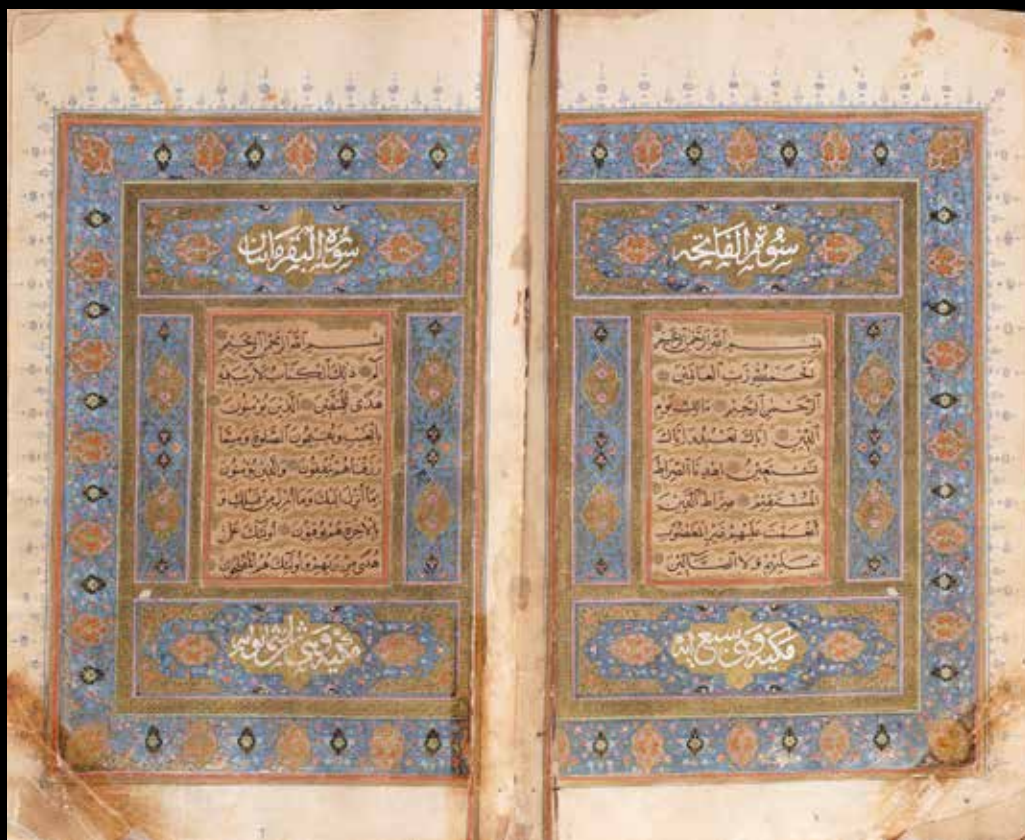 سُورَةُ الْفَاتِحَه
بِسْمِ اللَّهِ الرَّحْمَنِ الرَّحِيمِ
اَلْحَمْدُ لِلَّهِ رَبِّ الْعَالَمِينَ
اَلرَّحْمَنِ الرَّحِيمِ مَالِكِ يَوْمِ
الدِّينِ اِيَّاكَ نَعْبُدُ وَاِيَّاكَ
نَسْتَعِينُ اِهْدِنَا الصِّرَاطَ
الْمُسْتَقِيمَ صِرَاطَ الَّذِينَ
اَنْعَمْتَ عَلَيْهِمْ غَيْرِ الْمَغْضُوبِ
عَلَيْهِمْ وَلَا الضَّالِّينَ
مكية وهى سبع ايه
سورة البقرة مايتان
بِسْمِ اللَّهِ الرَّحْمَنِ الرَّحِيمِ
الم ذَلِكَ الْكِتَابُ لَا رَيْبَ فِيهِ
هُدًى لِلْمُتَّقِينَ اَلَّذِينَ يُؤْمِنُونَ
بِالْغَيْبِ وَيُقِيمُونَ الصَّلٰوةَ وَمِمَّا
رَزَقْنَاهُمْ يُنْفِقُونَ وَالَّذِينَ يُؤْمِنُونَ
بِمَا اُنْزِلَ اِلَيْكَ وَمَا اُنْزِلَ مِنْ قَبْلِكَ وَ
بِالْاٰخِرَةِ هُمْ يُوقِنُونَ اُولٰئِكَ عَلَى
هُدًى مِنْ رَبِّهِمْ وَاُولٰئِكَ هُمُ الْمُفْلِحُونَ